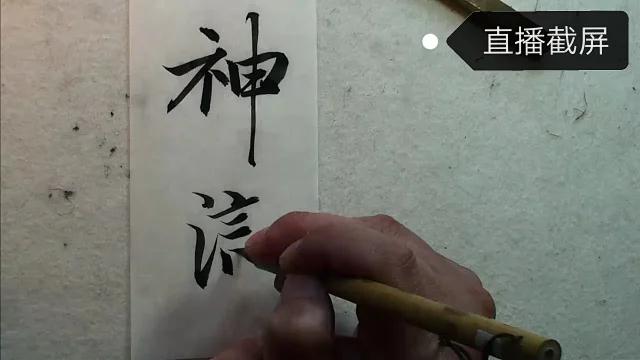 直播截屏
神